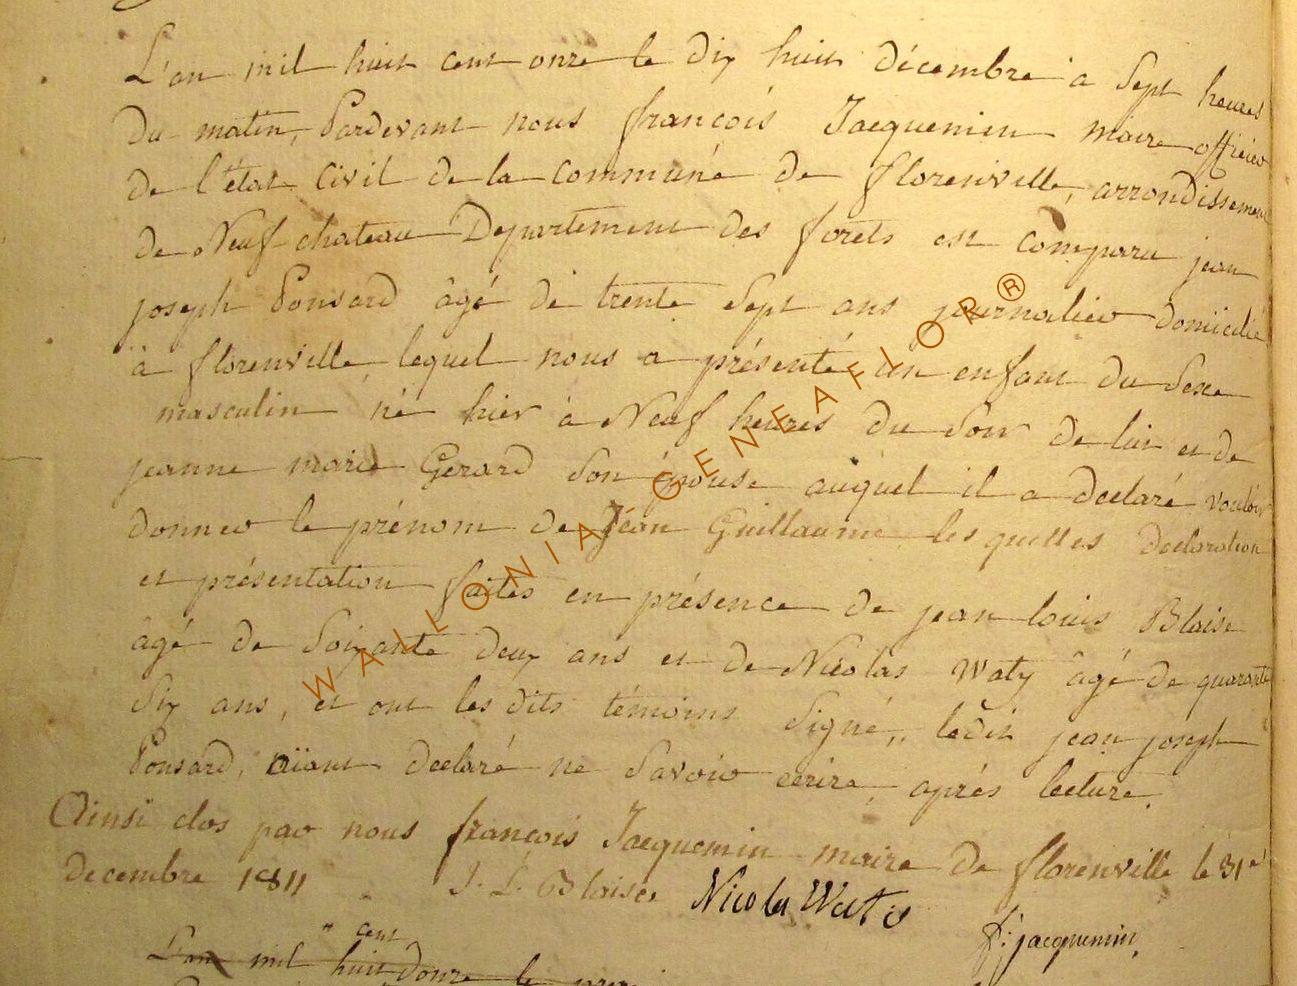 L'an mil huit cent onze le dix huit décembre à Sept heures
Du matin, Pardevant nous françois Jacquemin maire officier
de l'état Civil de la Commune de florenville, arrondissement
de Neufchateau Departement des forets est comparu jean
joseph Ponsard âgé de trente Sept ans journalier domicilié
à florenville lequel nous a présenté un enfant du Sexe
masculin né hier à Neuf heures du Soir de lui et de
jeanne marie Gerard Son épouse auquel il a declaré vouloir
donner le prénom de Jean Guillaume les quelles declaration
et présentation faites en présence de jean louis Blaise
âgé de Soixante deux ans et de Nicolas Waty âgé de quarante
Six ans, et ont les dits témoins Signé, ledit jean joseph
Ponsard, aïant declaré ne Savoir ecrire, après lecture.
Ainsi clos par nous françois Jacquemin maire de florenville le 31e
decembre 1811
J. L. Blaise Nicolas Watÿ
f: jacquemin
cent
L'an mil huit douze le
WALLONIA GENEAFLOR®